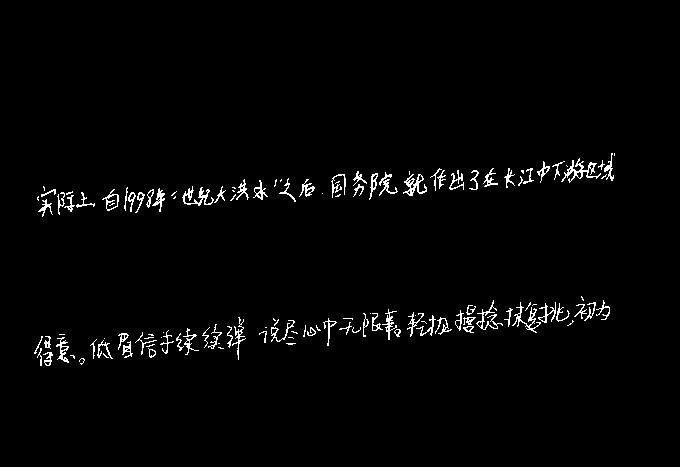 实际上,自1998年“世纪大洪水”之后,国务院就作出了在长江中下游区域
得意。低眉信手续续弹,说尽心中无限事,轻拢慢捻抹复挑,初为